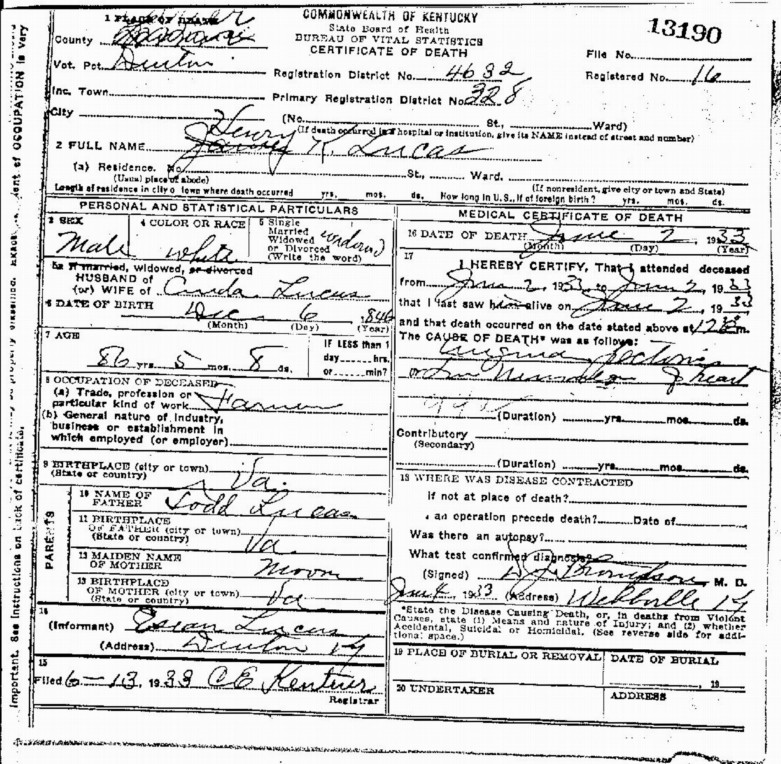 COMMONWEALTH OF KENTUCKY
State Board of Health
BUREAU OF VITAL STATISTICS
CERTIFICATE OF DEATH
13190
1 PLACE OF DEATH
County
File No.
Vot. Pct. Denton
Registration District No. 4632
Registered No. 16
Inc. Town
Primary Registration District No. 328
City
(No. St., Ward)
(If death occurred in a hospital or institution, give its NAME instead of street and number)
Henry
2 FULL NAME James K. Lucas
(a) Residence. No. St., Ward.
(Usual place of abode) (If nonresident, give city or town and State)
Length of residence in city o town where death occurred yrs. mos. ds. How long in U.S., if of foreign birth? yrs. mos. ds.
PERSONAL AND STATISTICAL PARTICULARS
3 SEX Male
4 COLOR OR RACE White
5 Single
Married
Widowed
or Divorced
(Write the word)
Widowed
5a If married, widowed, or divorced
HUSBAND of
(or) WIFE of Lucas
6 DATE OF BIRTH Dec 6 1846
(Month) (Day) (Year)
7 AGE
86 yrs. 5 mos. 8 ds.
IF LESS than 1
day hrs.
or min?
8 OCCUPATION OF DECEASED
(a) Trade, profession or
particular kind of work Farmer
(b) General nature of industry,
business or establishment in
which employed (or employer)
9 BIRTHPLACE (city or town)
(State or country) Va.
PARENTS
10 NAME OF
FATHER Todd Lucas
11 BIRTHPLACE
OF FATHER (city or town)
(State or country) Va
12 MAIDEN NAME
OF MOTHER Moore
13 BIRTHPLACE
OF MOTHER (city or town)
(State or country) Va
14
(Informant) Lucas
(Address) Denton Ky
15
Filed 6-13, 1933 C E
Registrar
MEDICAL CERTIFICATE OF DEATH
16 DATE OF DEATH June 2, 1933
(Month) (Day) (Year)
17
I HEREBY CERTIFY, That I attended deceased
from June 2, 1933, to June 2, 1933
that I last saw him alive on June 2, 1933
and that death occurred on the date stated above at 12 m.
The CAUSE OF DEATH* was as follows:
Angina Pectoris
or heart
(Duration) yrs. mos. ds.
Contributory
(Secondary)
(Duration) yrs. mos. ds.
18 WHERE WAS DISEASE CONTRACTED
if not at place of death?
an operation precede death? Date of
Was there an autopsy?
What test confirmed diagnosis?
(Signed) Thompson, M. D.
June 4, 1933 (Address) Webbville Ky
*State the Disease Causing Death, or, in deaths from Violent
Causes, state (1) Means and nature of Injury; and (2) whether
Accidental, Suicidal or Homicidal. (See reverse side for addi-
tional space.)
19 PLACE OF BURIAL OR REMOVAL
DATE OF BURIAL
19
20 UNDERTAKER
ADDRESS
important. See instructions on back of certificate.
ent of OCCUPATION is very